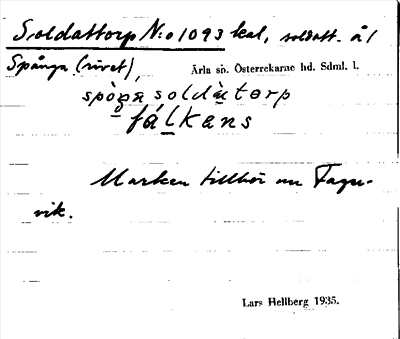 Soldattorp N:o 1093 kal, soldatt. å/
Spånga (rivet), Ärla sn. Österrekarne hd. Sdml. l.
spòŋa soldàtorp
fálkens
Marken tillhör nu Fager-
vik.
Lars Hellberg 1935.